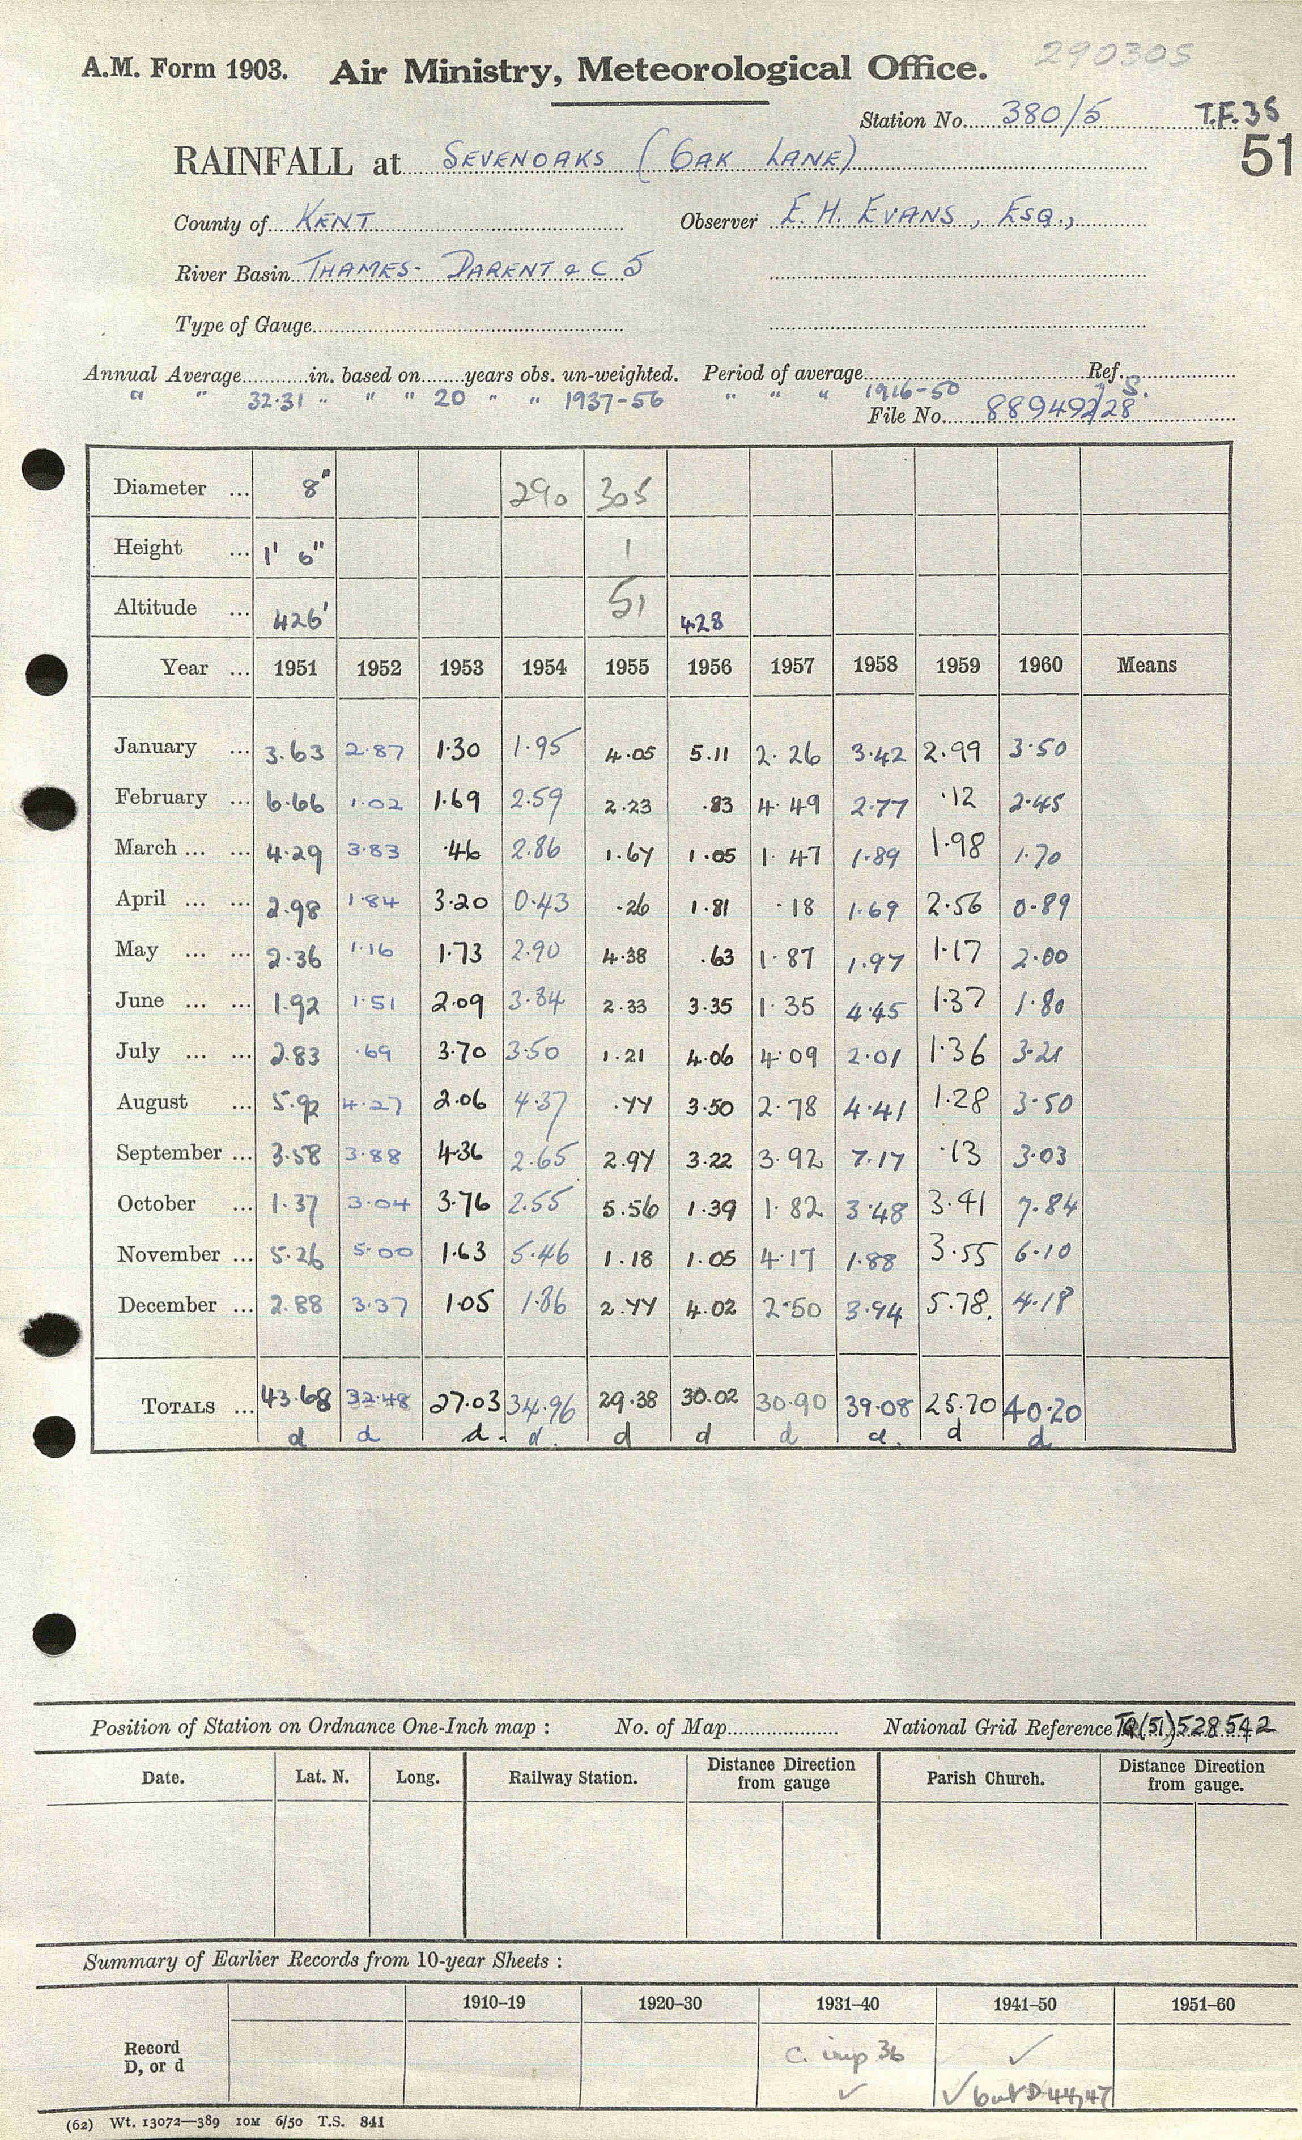 290305
A.M. Form 1903. Air Ministry, Meteorological Office.
Station No. 380/5 T.F. 35
51
RAINFALL at SEVENOAKS (OAK LANE)
County of KENT Observer E. H. EVANS, ESQ.,
River Basin THAMES - DARENT & C 5
Type of Gauge
Annual Average in. based on years obs. un-weighted. Period of average Ref.
" " 32.31 " " " 20 " " 1937-56 " " " 1916-50 S.
File No. 889492/28
Diameter ... 8" 290 305
Height ... 1' 6" 1
Altitude ... 426' 51 428
Year ... 1951 1952 1953 1954 1955 1956 1957 1958 1959 1960 Means
January ... 3.63 2.87 1.30 1.95 4.05 5.11 2.26 3.42 2.99 3.50
February ... 6.66 1.02 1.69 2.59 2.23 .83 4.49 2.77 .12 2.45
March ... ... 4.29 3.83 .46 2.86 1.67 1.05 1.47 1.89 1.98 1.70
April ... ... 2.98 1.84 3.20 0.43 .26 1.81 .18 1.69 2.56 0.89
May ... ... 2.36 1.16 1.73 2.90 4.38 .63 1.87 1.97 1.17 2.00
June ... ... 1.92 1.51 2.09 3.84 2.33 3.35 1.35 4.45 1.37 1.80
July ... ... 2.83 .69 3.70 3.50 1.21 4.06 4.09 2.01 1.36 3.21
August ... 5.92 4.27 2.06 4.37 .77 3.50 2.78 4.41 1.28 3.50
September ... 3.58 3.88 4.36 2.65 2.97 3.22 3.92 7.17 .13 3.03
October ... 1.37 3.04 3.76 2.55 5.56 1.39 1.82 3.48 3.41 7.84
November ... 5.26 5.00 1.63 5.46 1.18 1.05 4.17 1.88 3.55 6.10
December ... 2.88 3.37 1.05 1.86 2.77 4.02 2.50 3.94 5.78. 4.18
TOTALS ... 43.68 32.48 27.03 34.96 29.38 30.02 30.90 39.08 25.70 40.20
d d d. d. d d d d. d d
Position of Station on Ordnance One-Inch map : No. of Map National Grid Reference TQ(51)528542
Date. Lat. N. Long. Railway Station. Distance Direction from gauge Parish Church. Distance Direction from gauge.
Summary of Earlier Records from 10-year Sheets :
1910-19 1920-30 1931-40 1941-50 1951-60
Record D, or d c. imp 36 ✓
✓ ✓ but D 44,47
(62) Wt. 13072—389 10M 6/50 T.S. 841